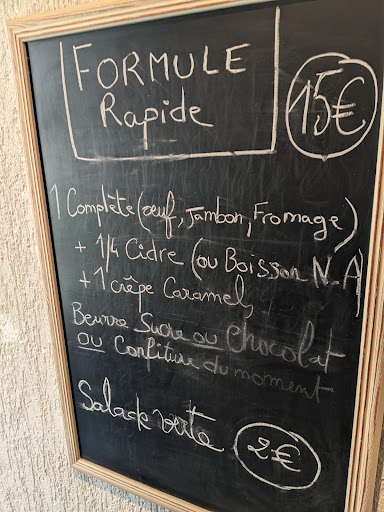 FORMULE
Rapide
15€
1 Complète (oeuf, Jambon, Fromage)
+ 1/4 Cidre (ou Boisson N.A)
+ 1 crêpe Caramel,
Beurre Sucre ou Chocolat
ou Confiture du moment
Salade verte 2€